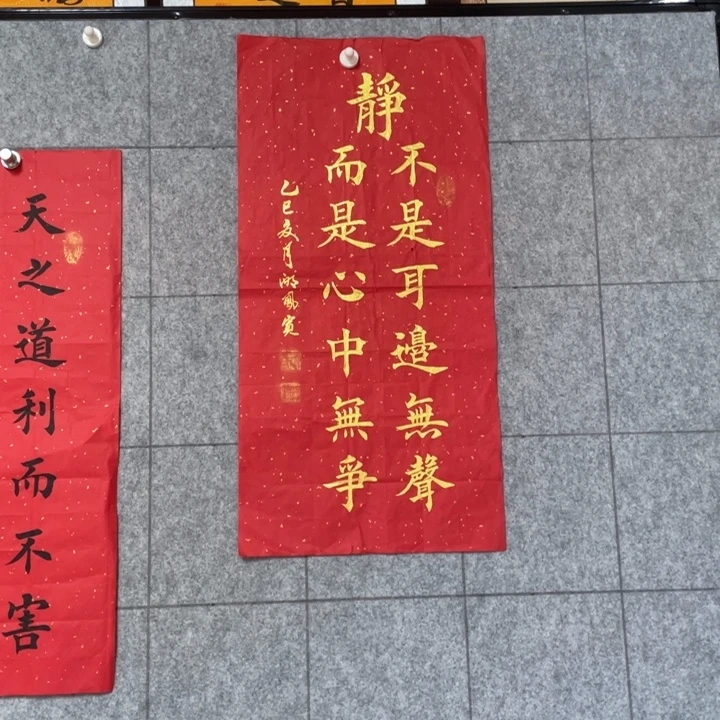 靜
不是耳邊無聲
而是心中無爭
乙巳夏月
天之道利而不害